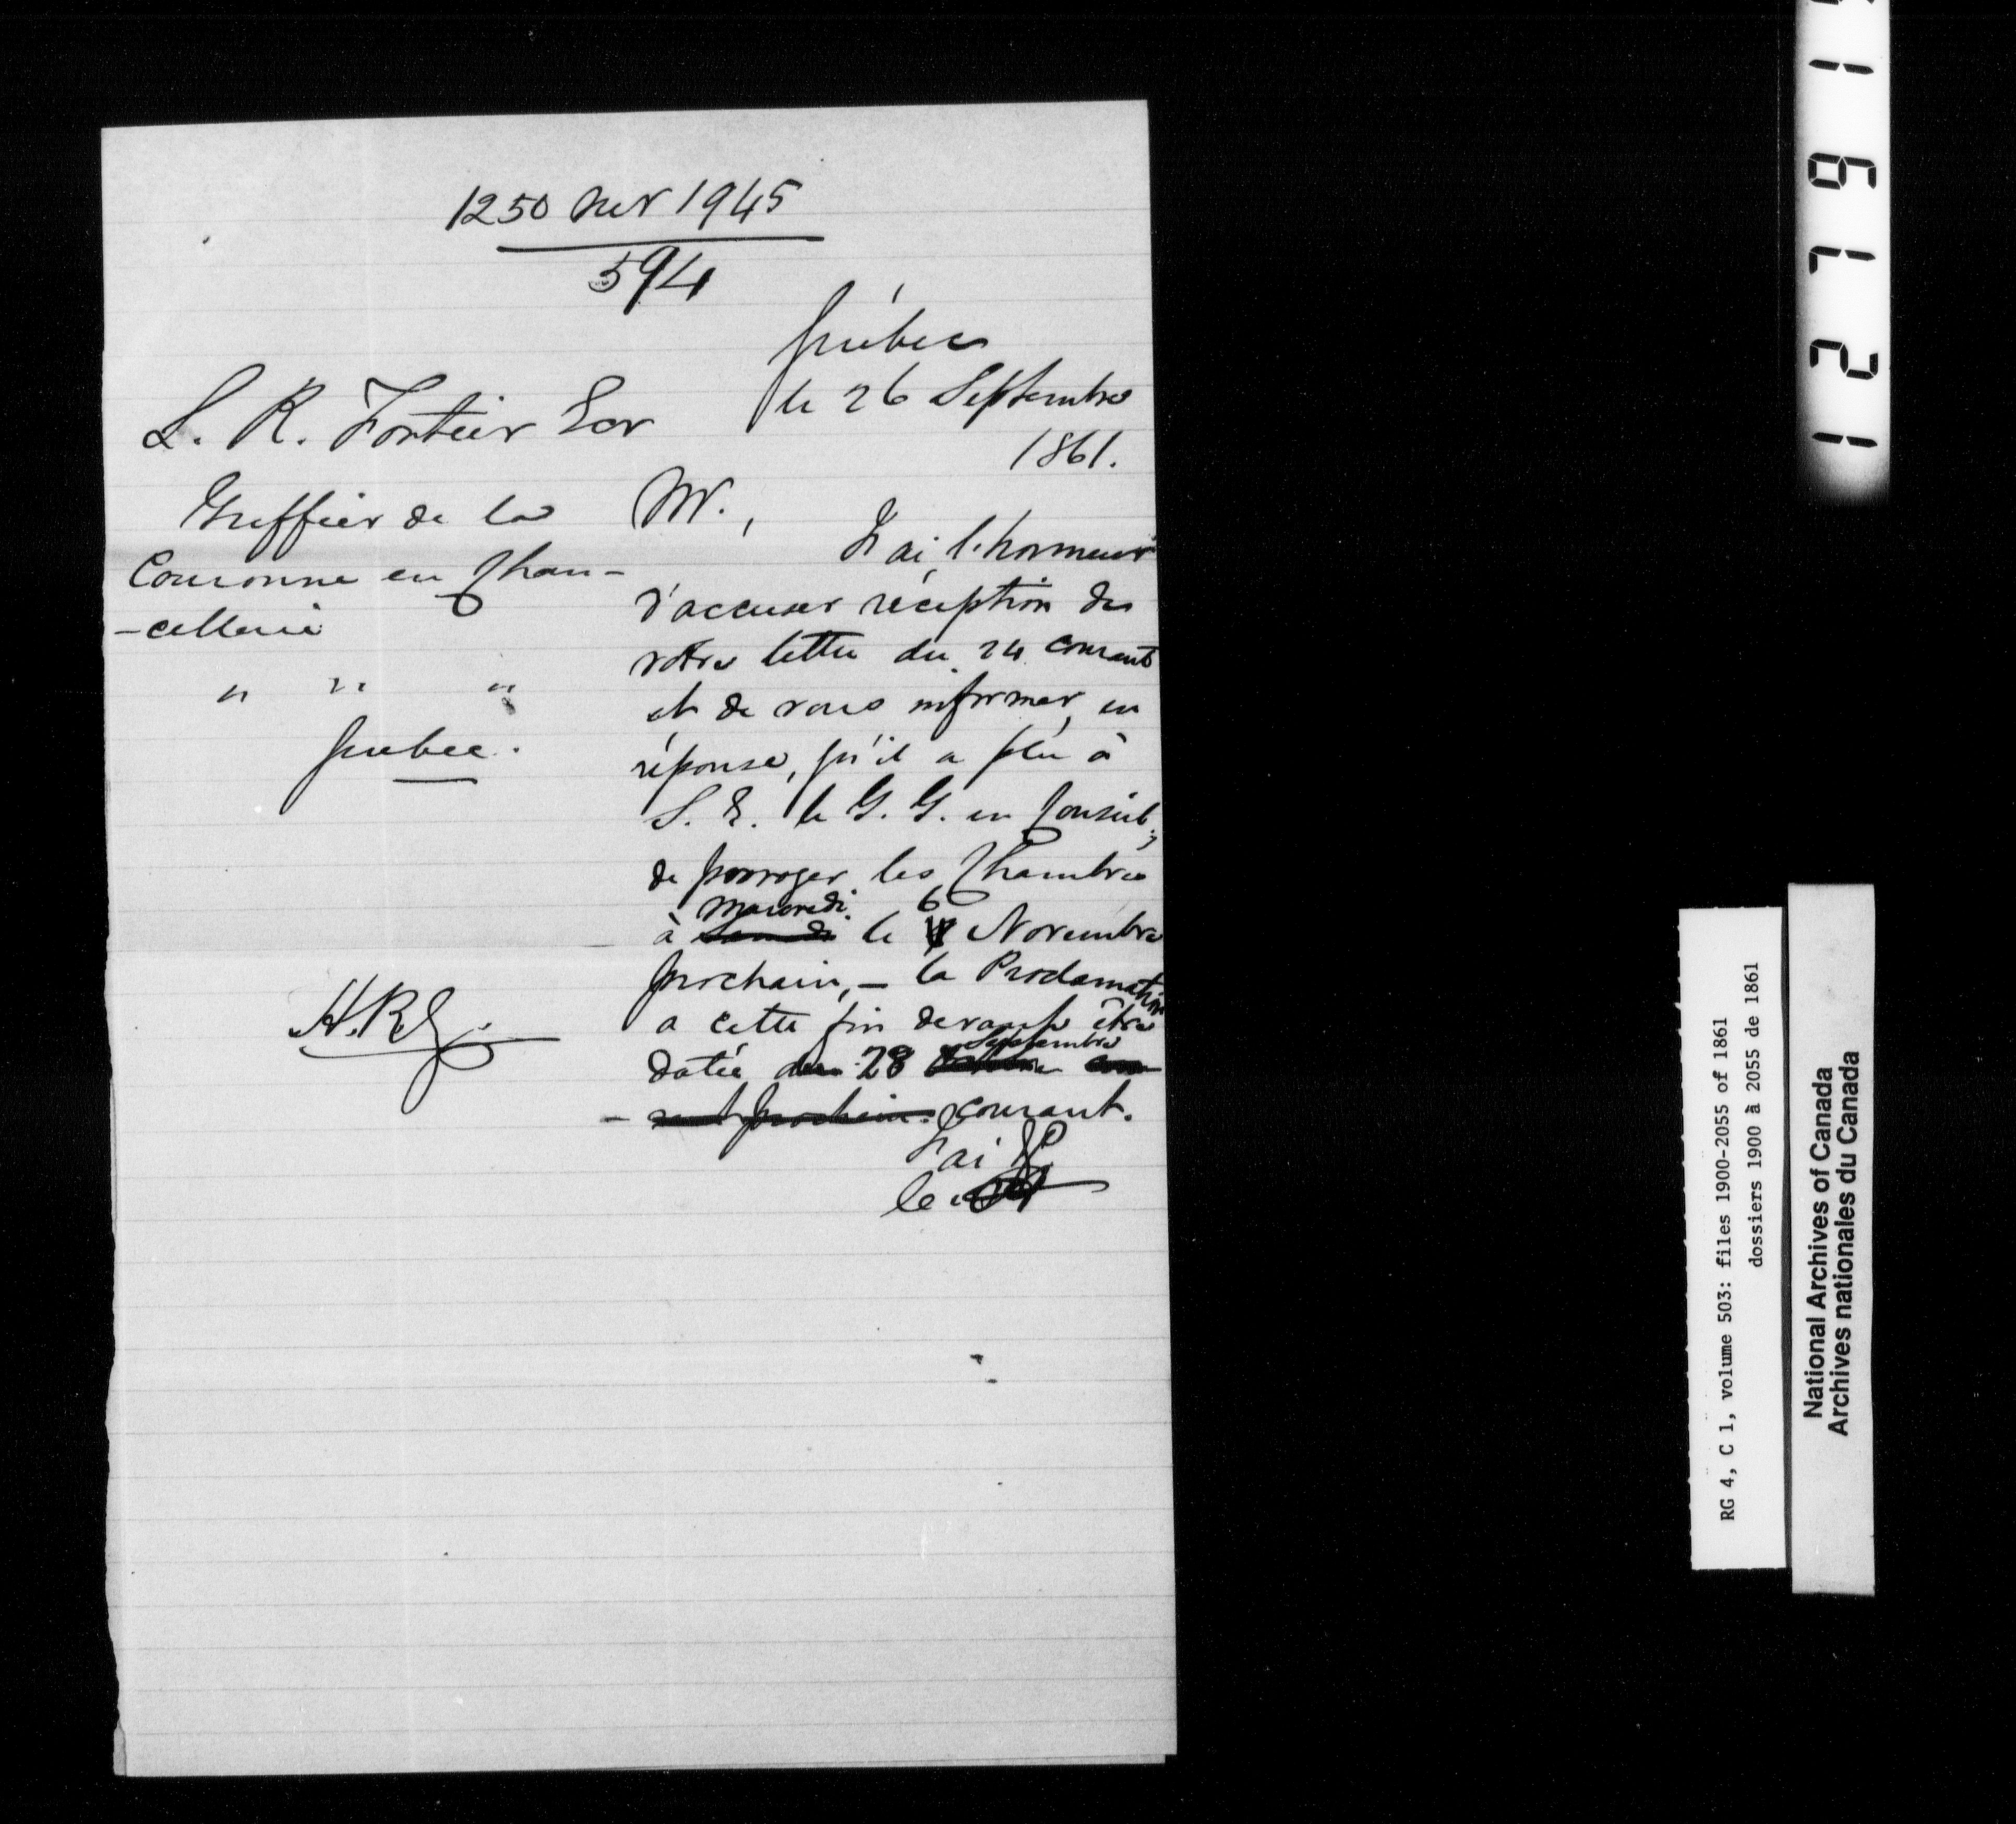 1250 sur 1945
594
Québec
le 26 Septembre
1861.
L. R. Fortier Ecr
Greffier de la
Couronne en Chan-
-cellerie
" " "
Québec.
H.R.
Mr.,
J'ai l'honneur
d'accuser réception de
votre lettre du 24 courant
et de vous informer, en
réponse, qu'il a plu à
S. E. le G. G. en Conseil,
de proroger les Chambres
à Mercredi le 6 Novembre
prochain, — la Proclamation
a cette fin devant être
datée du 28 Septembre
courant.
J'ai &c
le
RG 4, C 1, volume 503: files 1900-2055 of 1861
dossiers 1900 à 2055 de 1861
National Archives of Canada
Archives nationales du Canada